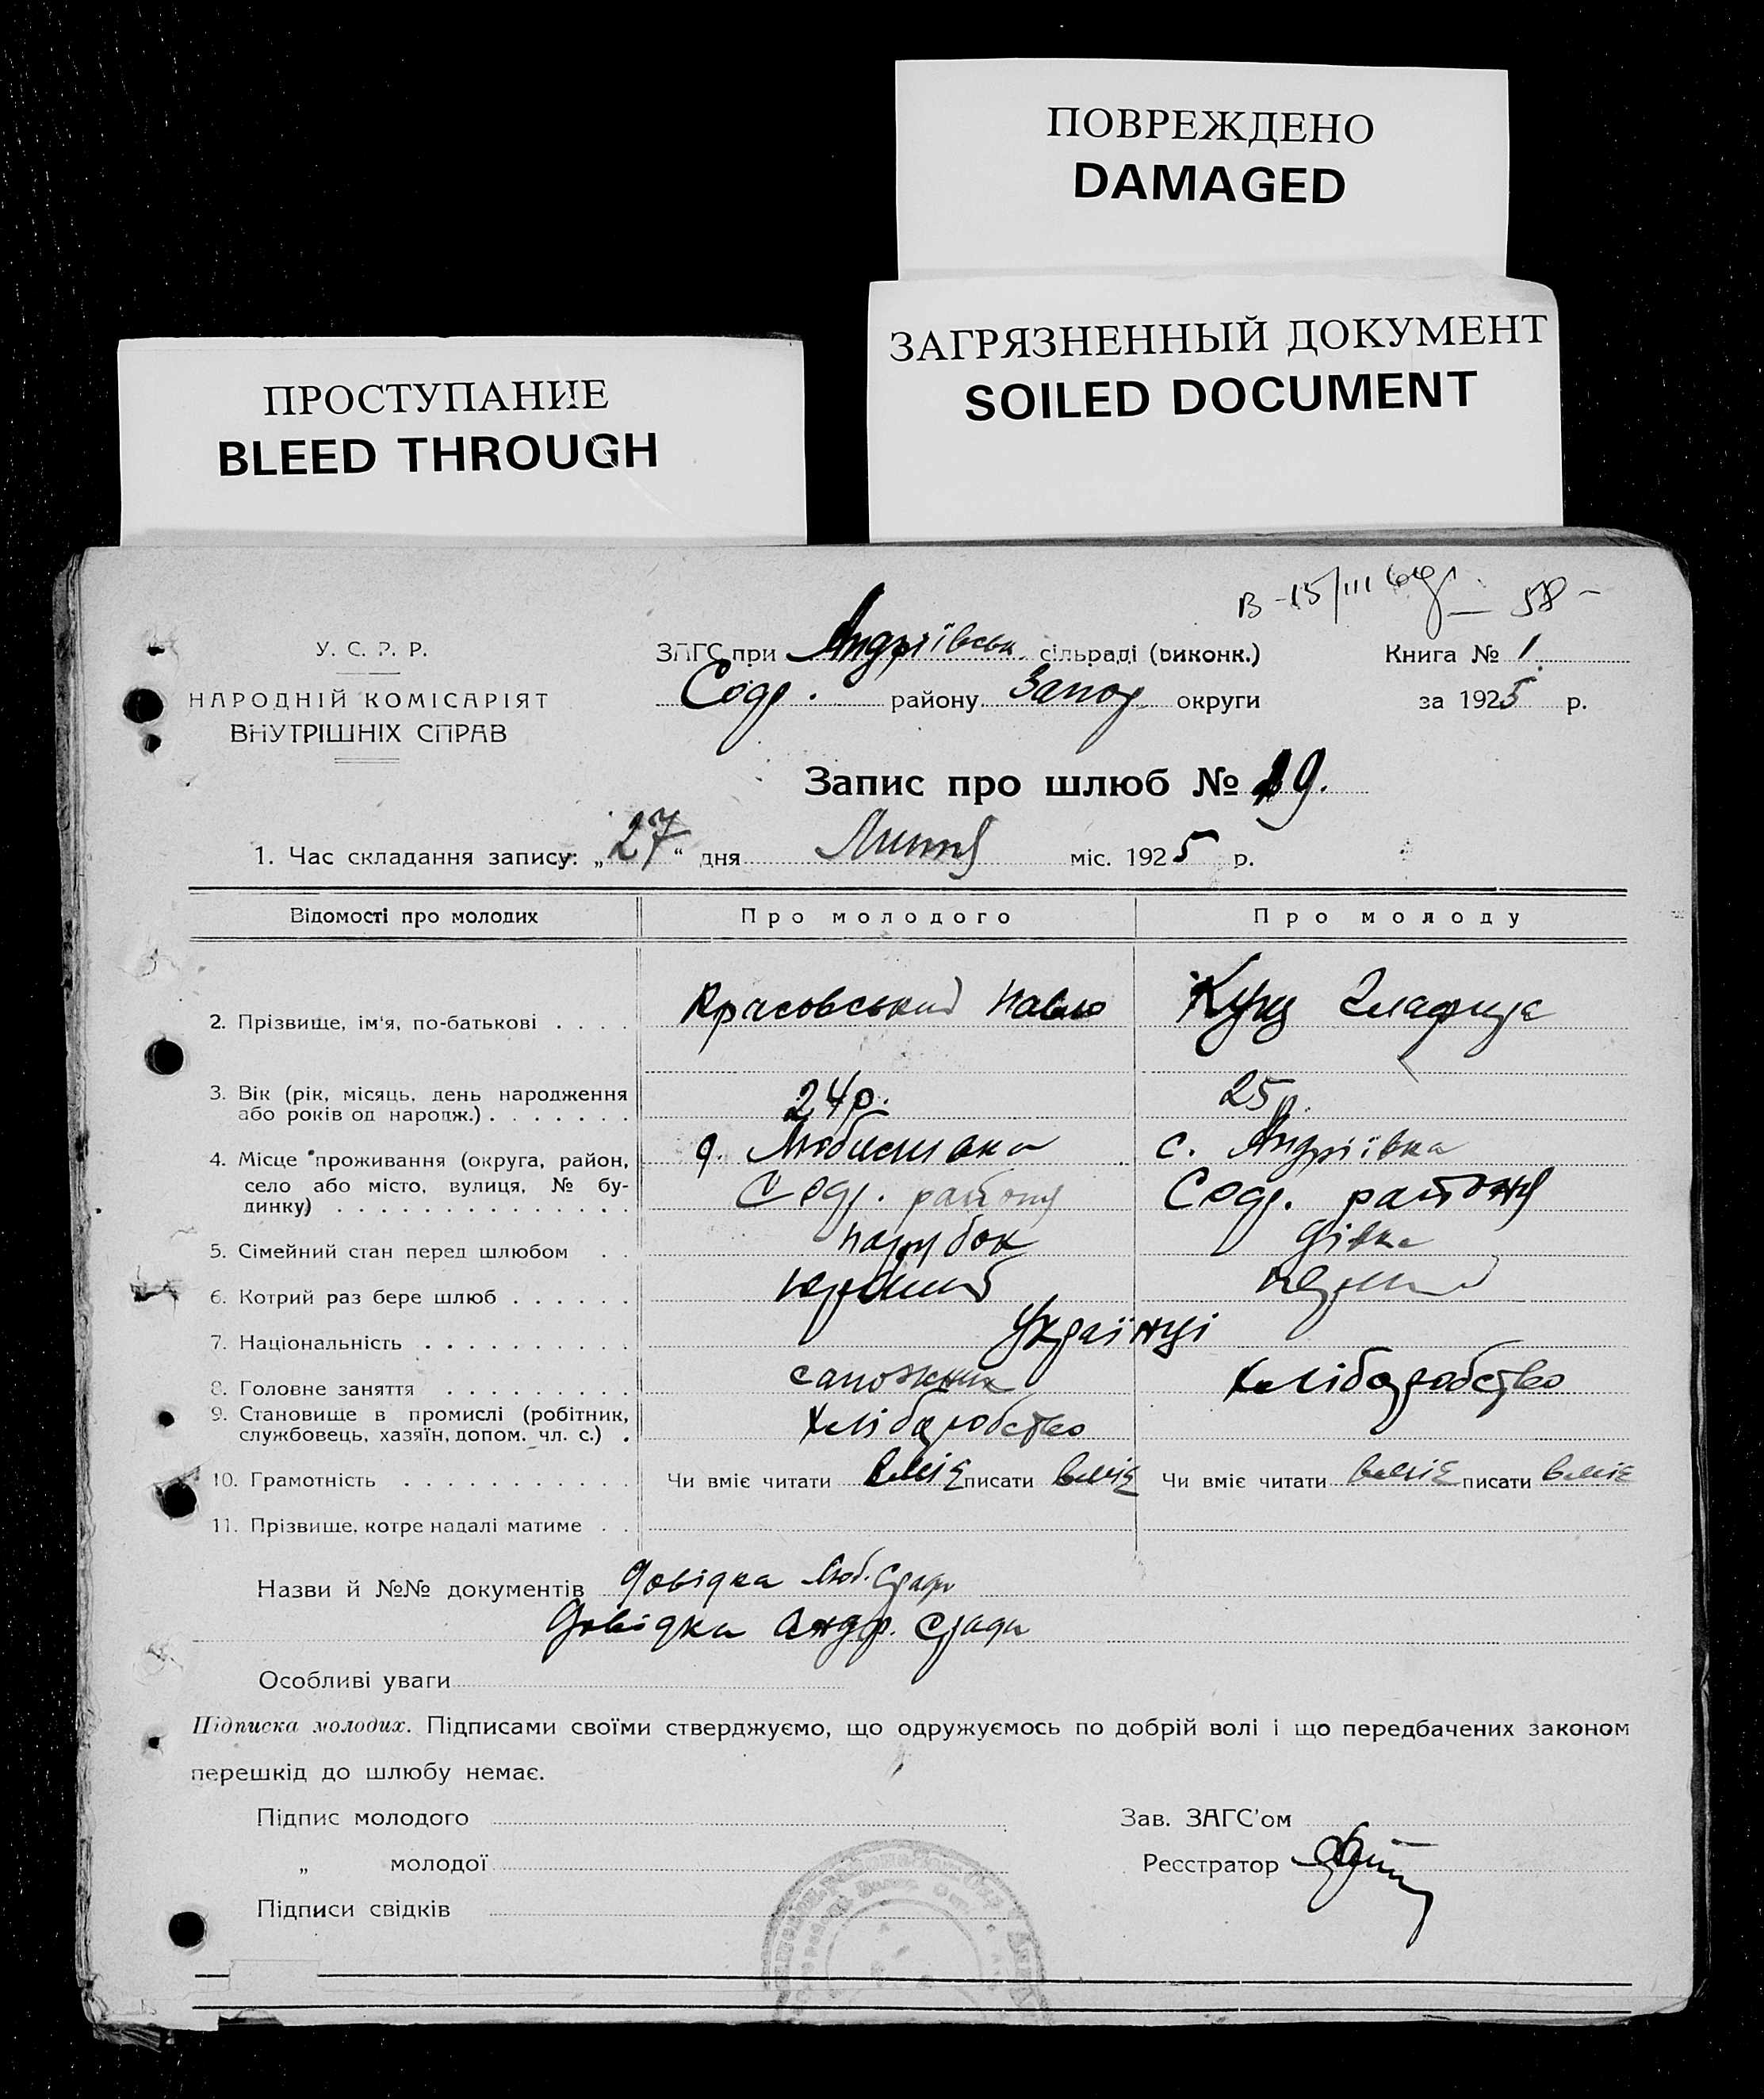 ПОВРЕЖДЕНО
DAMAGED
ЗАГРЯЗНЕННЫЙ ДОКУМЕНТ
SOILED DOCUMENT
ПРОСТУПАНИЕ
BLEED THROUGH
58 -
У. С. Р. Р.
НАРОДНІЙ КОМІСАРІЯТ
ВНУТРІШНІХ СПРАВ
ЗАГС при Андріївськ. сільраді (виконк.)
Книга № 1
району Запор округи
за 1925 р.
Запис про шлюб № 19.
1. Час складання запису: „27“ дня Липня міс. 1925 р.
Відомості про молодих Про молодого Про молоду
2. Прізвище, ім'я, по-батькові . . . . Красовський Павло Куц Глафира
3. Вік (рік, місяць, день народження або років од народж.) . . . . . . . 24 р. 25 р.
4. Місце проживання (округа, район, село або місто, вулиця, № будинку) . . . . . . . . . . . . . с. Андріївка
району району
5. Сімейний стан перед шлюбом . . парубок дівка
6. Котрий раз бере шлюб . . . . . . первий первий
7. Національність . . . . . . . . . . Українці
8. Головне заняття . . . . . . . . . сапожник хліборобство
9. Становище в промислі (робітник, службовець, хазяїн, допом. чл. с.) . хліборобство
10. Грамотність . . . . . . . . . . . Чи вміє читати вміє писати вміє Чи вміє читати вміє писати вміє
11. Прізвище, котре надалі матиме . .
Назви й №№ документів довідка Люб. С/ради
Довідка Андр. С/ради
Особливі уваги
Підписка молодих. Підписами своїми стверджуємо, що одружуємось по добрій волі і що передбачених законом
перешкід до шлюбу немає.
Підпис молодого
Зав. ЗАГС'ом
„ молодої
Реєстратор
Підписи свідків